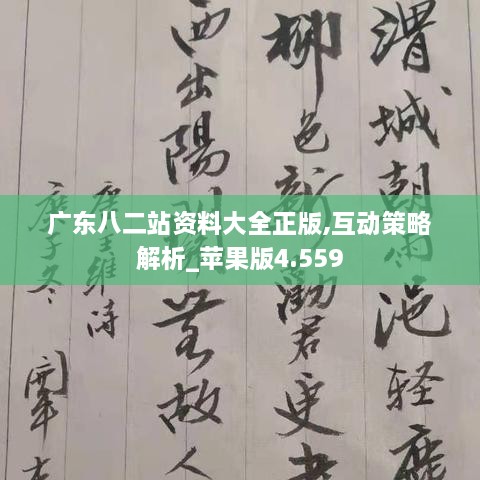 渭城朝雨浥轻
柳色新勸君更
西出陽関無故人
唐王维诗
庚子冬
广东八二站资料大全正版,互动策略
解析_苹果版4.559